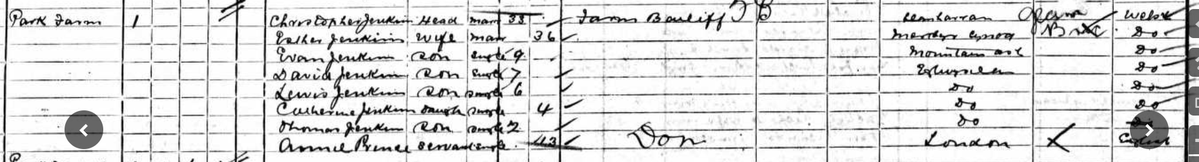 Park Farm 1 Christopher Jenkins Head mar 38 Farm Bailiff Glam Welsh
Esther Jenkins Wife mar 36 Do
Evan Jenkins son single 9 Mountain ash Do
David Jenkins son single 7 Do
Lewis Jenkins son single 6 Do Do
Catherine Jenkins daugh single 4 Do Do
Thomas Jenkins son single 2 Do Do
Annie Prince servant single Dom London X